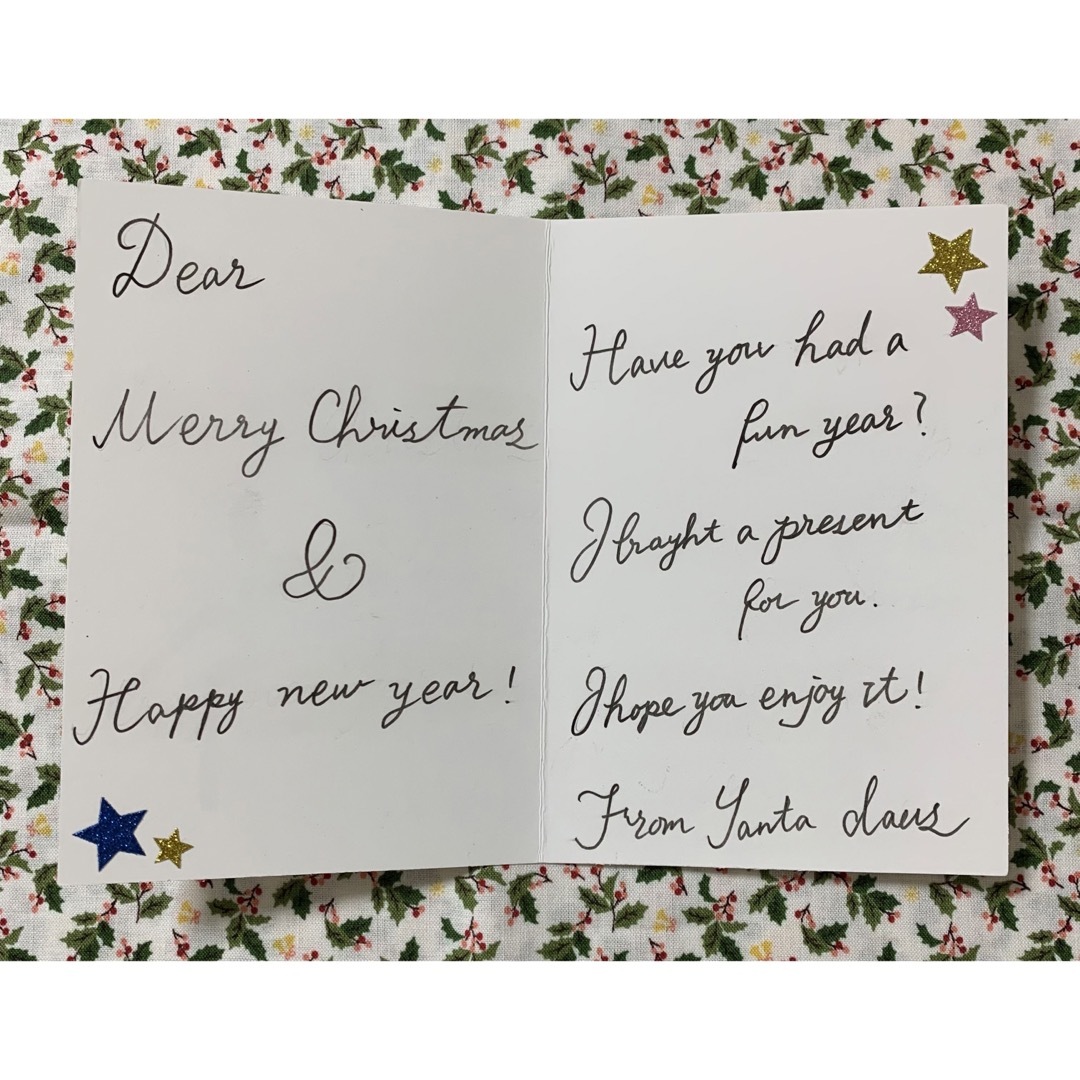 Dear
Merry Christmas
&
Happy new year!
Have you had a
fun year?
I braght a present
for you.
I hope you enjoy it!
From Santa claus